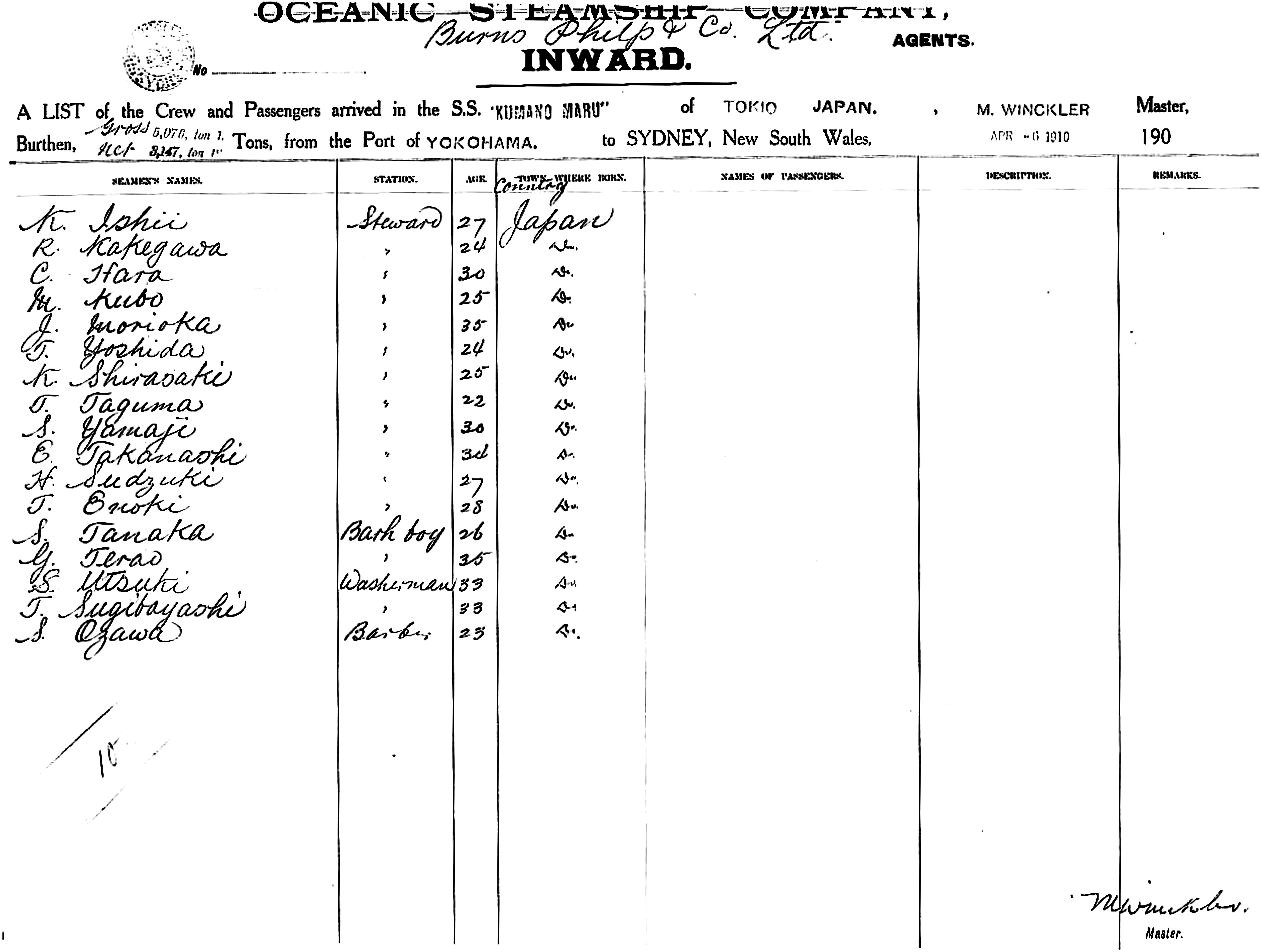 OCEANIC STEAMSHIP COMPANY,
Burns Philp & Co. Ltd. AGENTS.
No
INWARD.
A LIST of the Crew and Passengers arrived in the S.S. "KUMANO MARU" of TOKIO JAPAN. , M. WINCKLER Master,
Burthen, Gross 5,076, ton Net 3,147, ton Tons, from the Port of YOKOHAMA. to SYDNEY, New South Wales, APR -6 1910 190
SEAMEN'S NAMES. STATION. AGE. TOWN WHERE BORN. Country NAMES OF PASSENGERS. DESCRIPTION. REMARKS.
K. Ishii Steward 27 Japan
R. Kakegawa " 24 Do.
C. Hara " 30 Do.
M. Kubo " 25 Do.
J. Morioka " 35 Do
T. Yoshida " 24 Do.
K. Shirasaki " 25 Do
T. Taguma " 22 Do.
S. Yamaji " 30 Do.
E. Takanashi " Do.
H. Sudzuki " 27 Do.
T. Enoki " 28 Do.
S. Tanaka Bath boy 26 Do
G. Terao " 35 Do.
S. Utsuki Washerman 33 Do
T. Sugibayashi " 33 Do
S. Ozawa Barber 23 Do.
M Winckler.
Master.